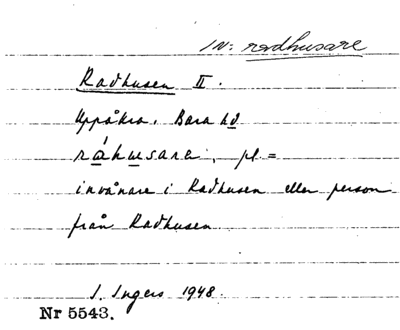 IN: radhusare
Radhusen II.
Uppåkra. Bara hd
ráhusara, pl =
invånare i Radhusen eller person
från Radhusen
I. Ingers 1948.
Nr 5543.